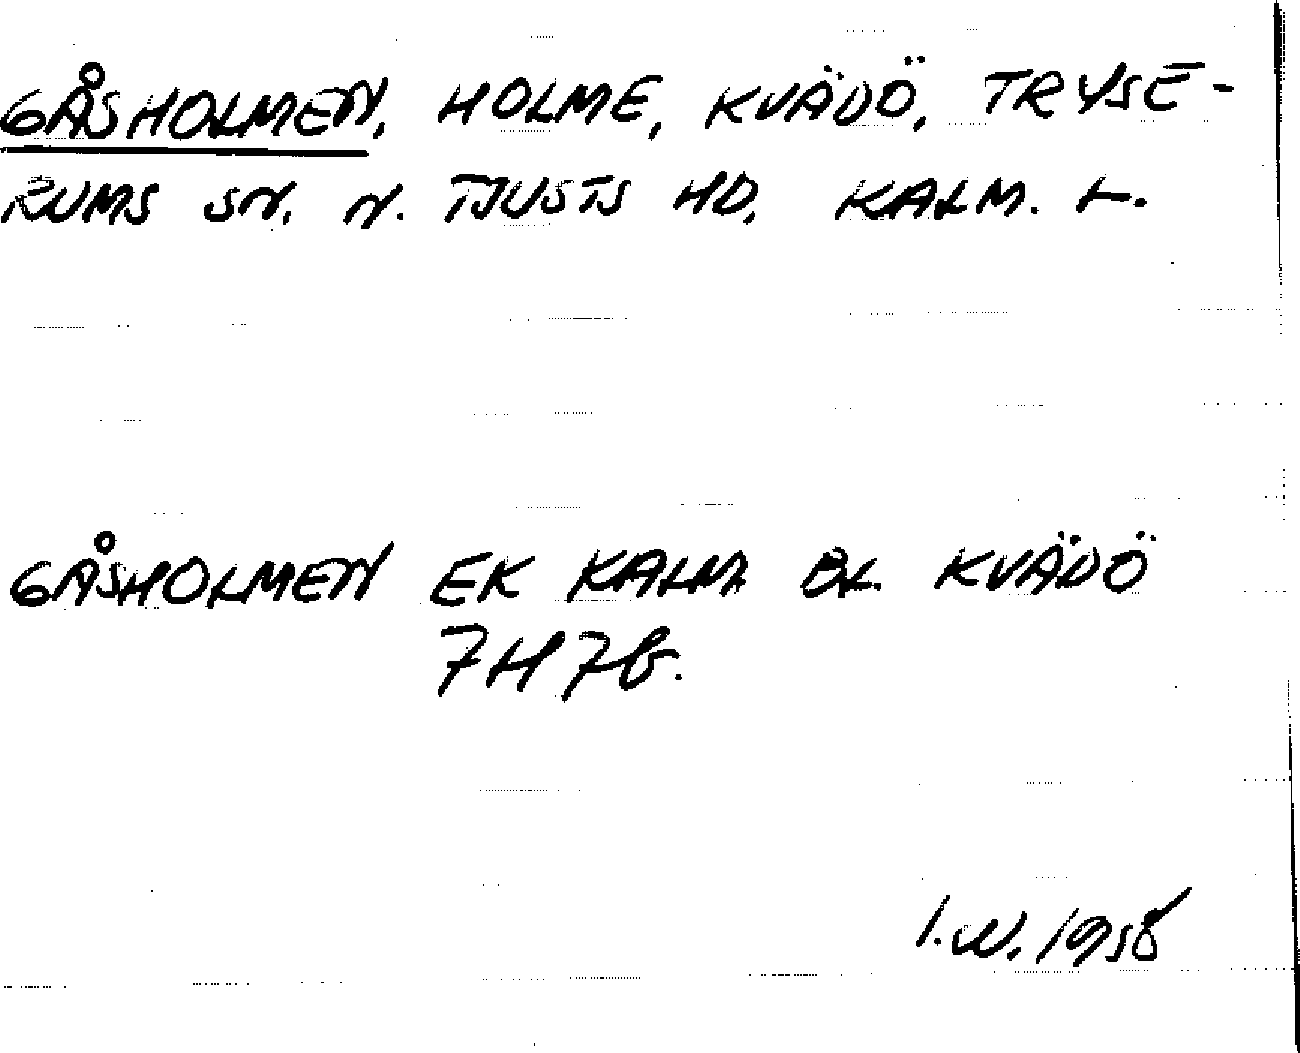 GÅSHOLMEN, HOLME, KVÄDÖ, TRYSE-
RUMS SN. N. TJUSTS HD, KALM. L.
GÅSHOLMEN EK KALM BL. KVÄDÖ
7H 7b.
I.N. 1958